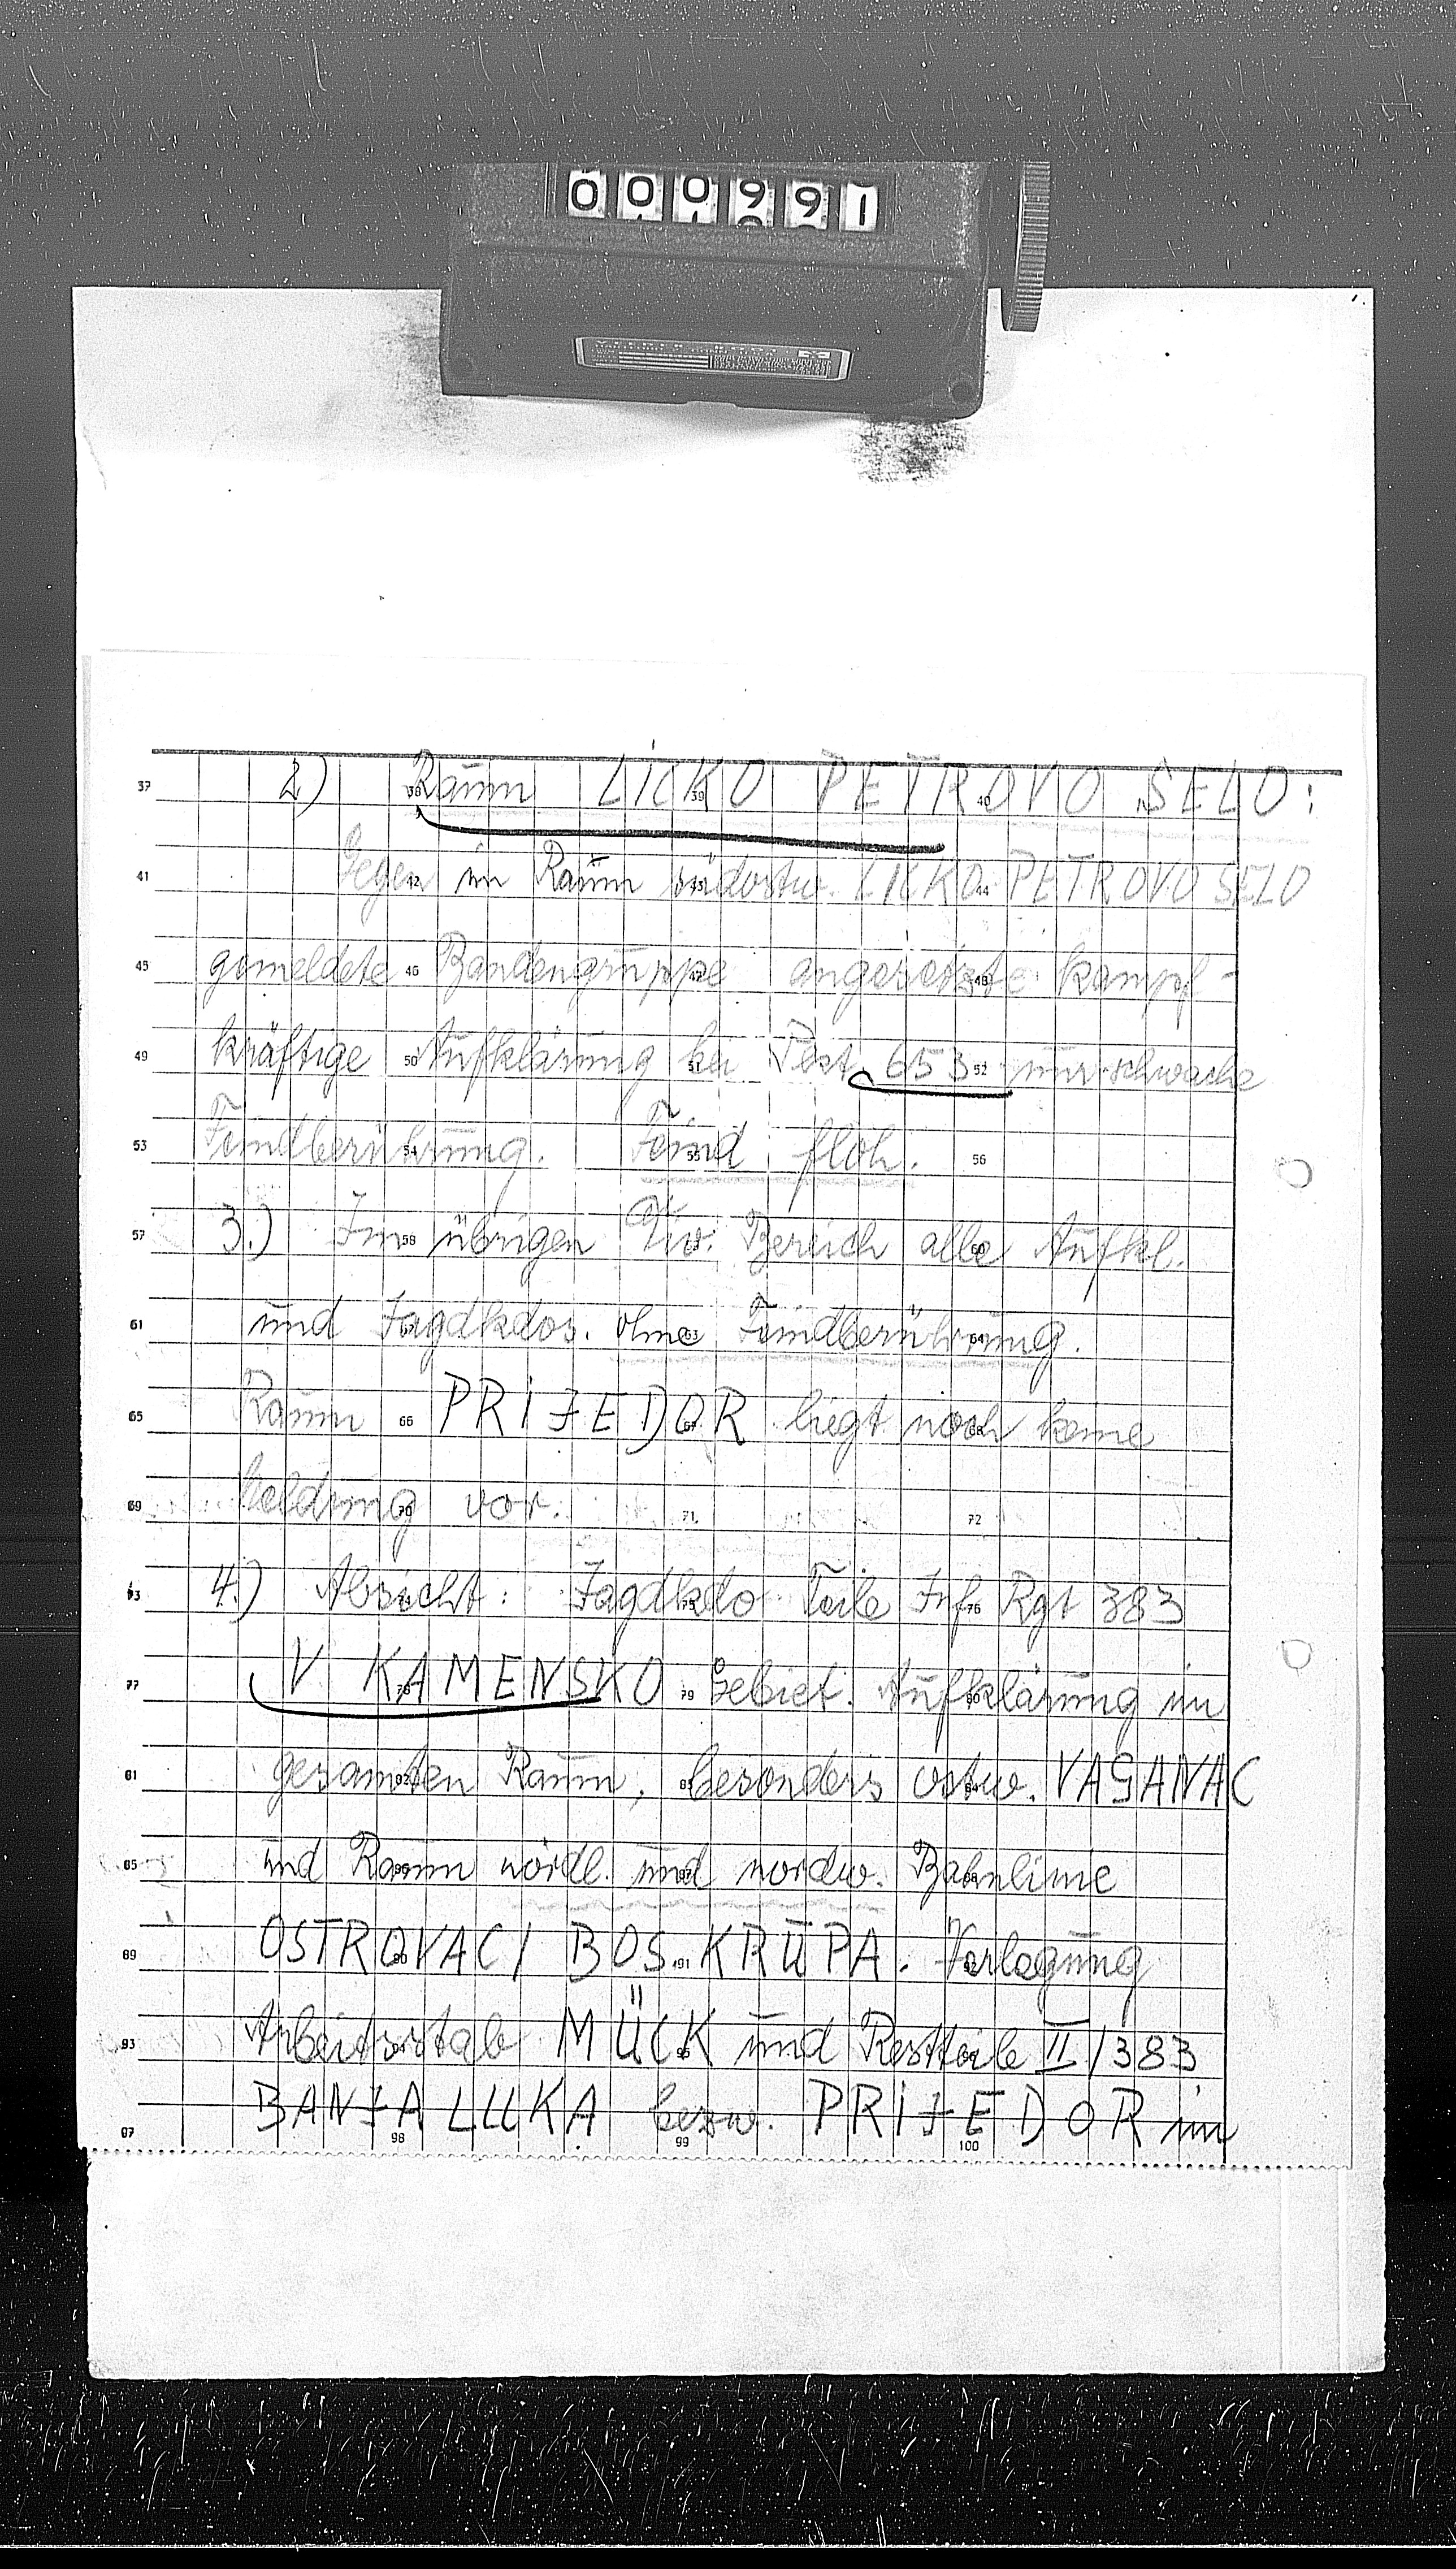 000991
2) Raum LICKO PETROVO SELO:
Gegen im Raum südostw. LICKO PETROVO SELO
gemeldete Bandengruppe angesetzte kampf-
kräftige Aufklärung bei 653 nur schwache
Feindberührung. Feind floh.
3.) Im übrigen Div. Bereich alle Aufkl.
und Jagdkdos. ohne Feindberührung.
Raum PRIJEDOR liegt noch keine
Meldung vor.
4.) Absicht: Jagdkdo Teile Inf Rgt 383
V. KAMENSKO Gebiet. Aufklärung im
gesamten Raum, besonders ostw. VAGANAC
und Raum nördl. und nordw. Bahnlinie
OSTROVAC / BOS. KRUPA. Verlegung
Arbeitsstab MÜCK und Restteile II/383
BANJA LUKA bezw. PRIJEDOR im
37 38 39 40
41 42 43 44
45 46 47 48
49 50 51 52
53 54 55 56
57 58 60
61 63 64
65 66
69 70 71 72
73 75 76
77 78 79 80
81 82 83 84
85
89 90 91
93
97 98 99 100